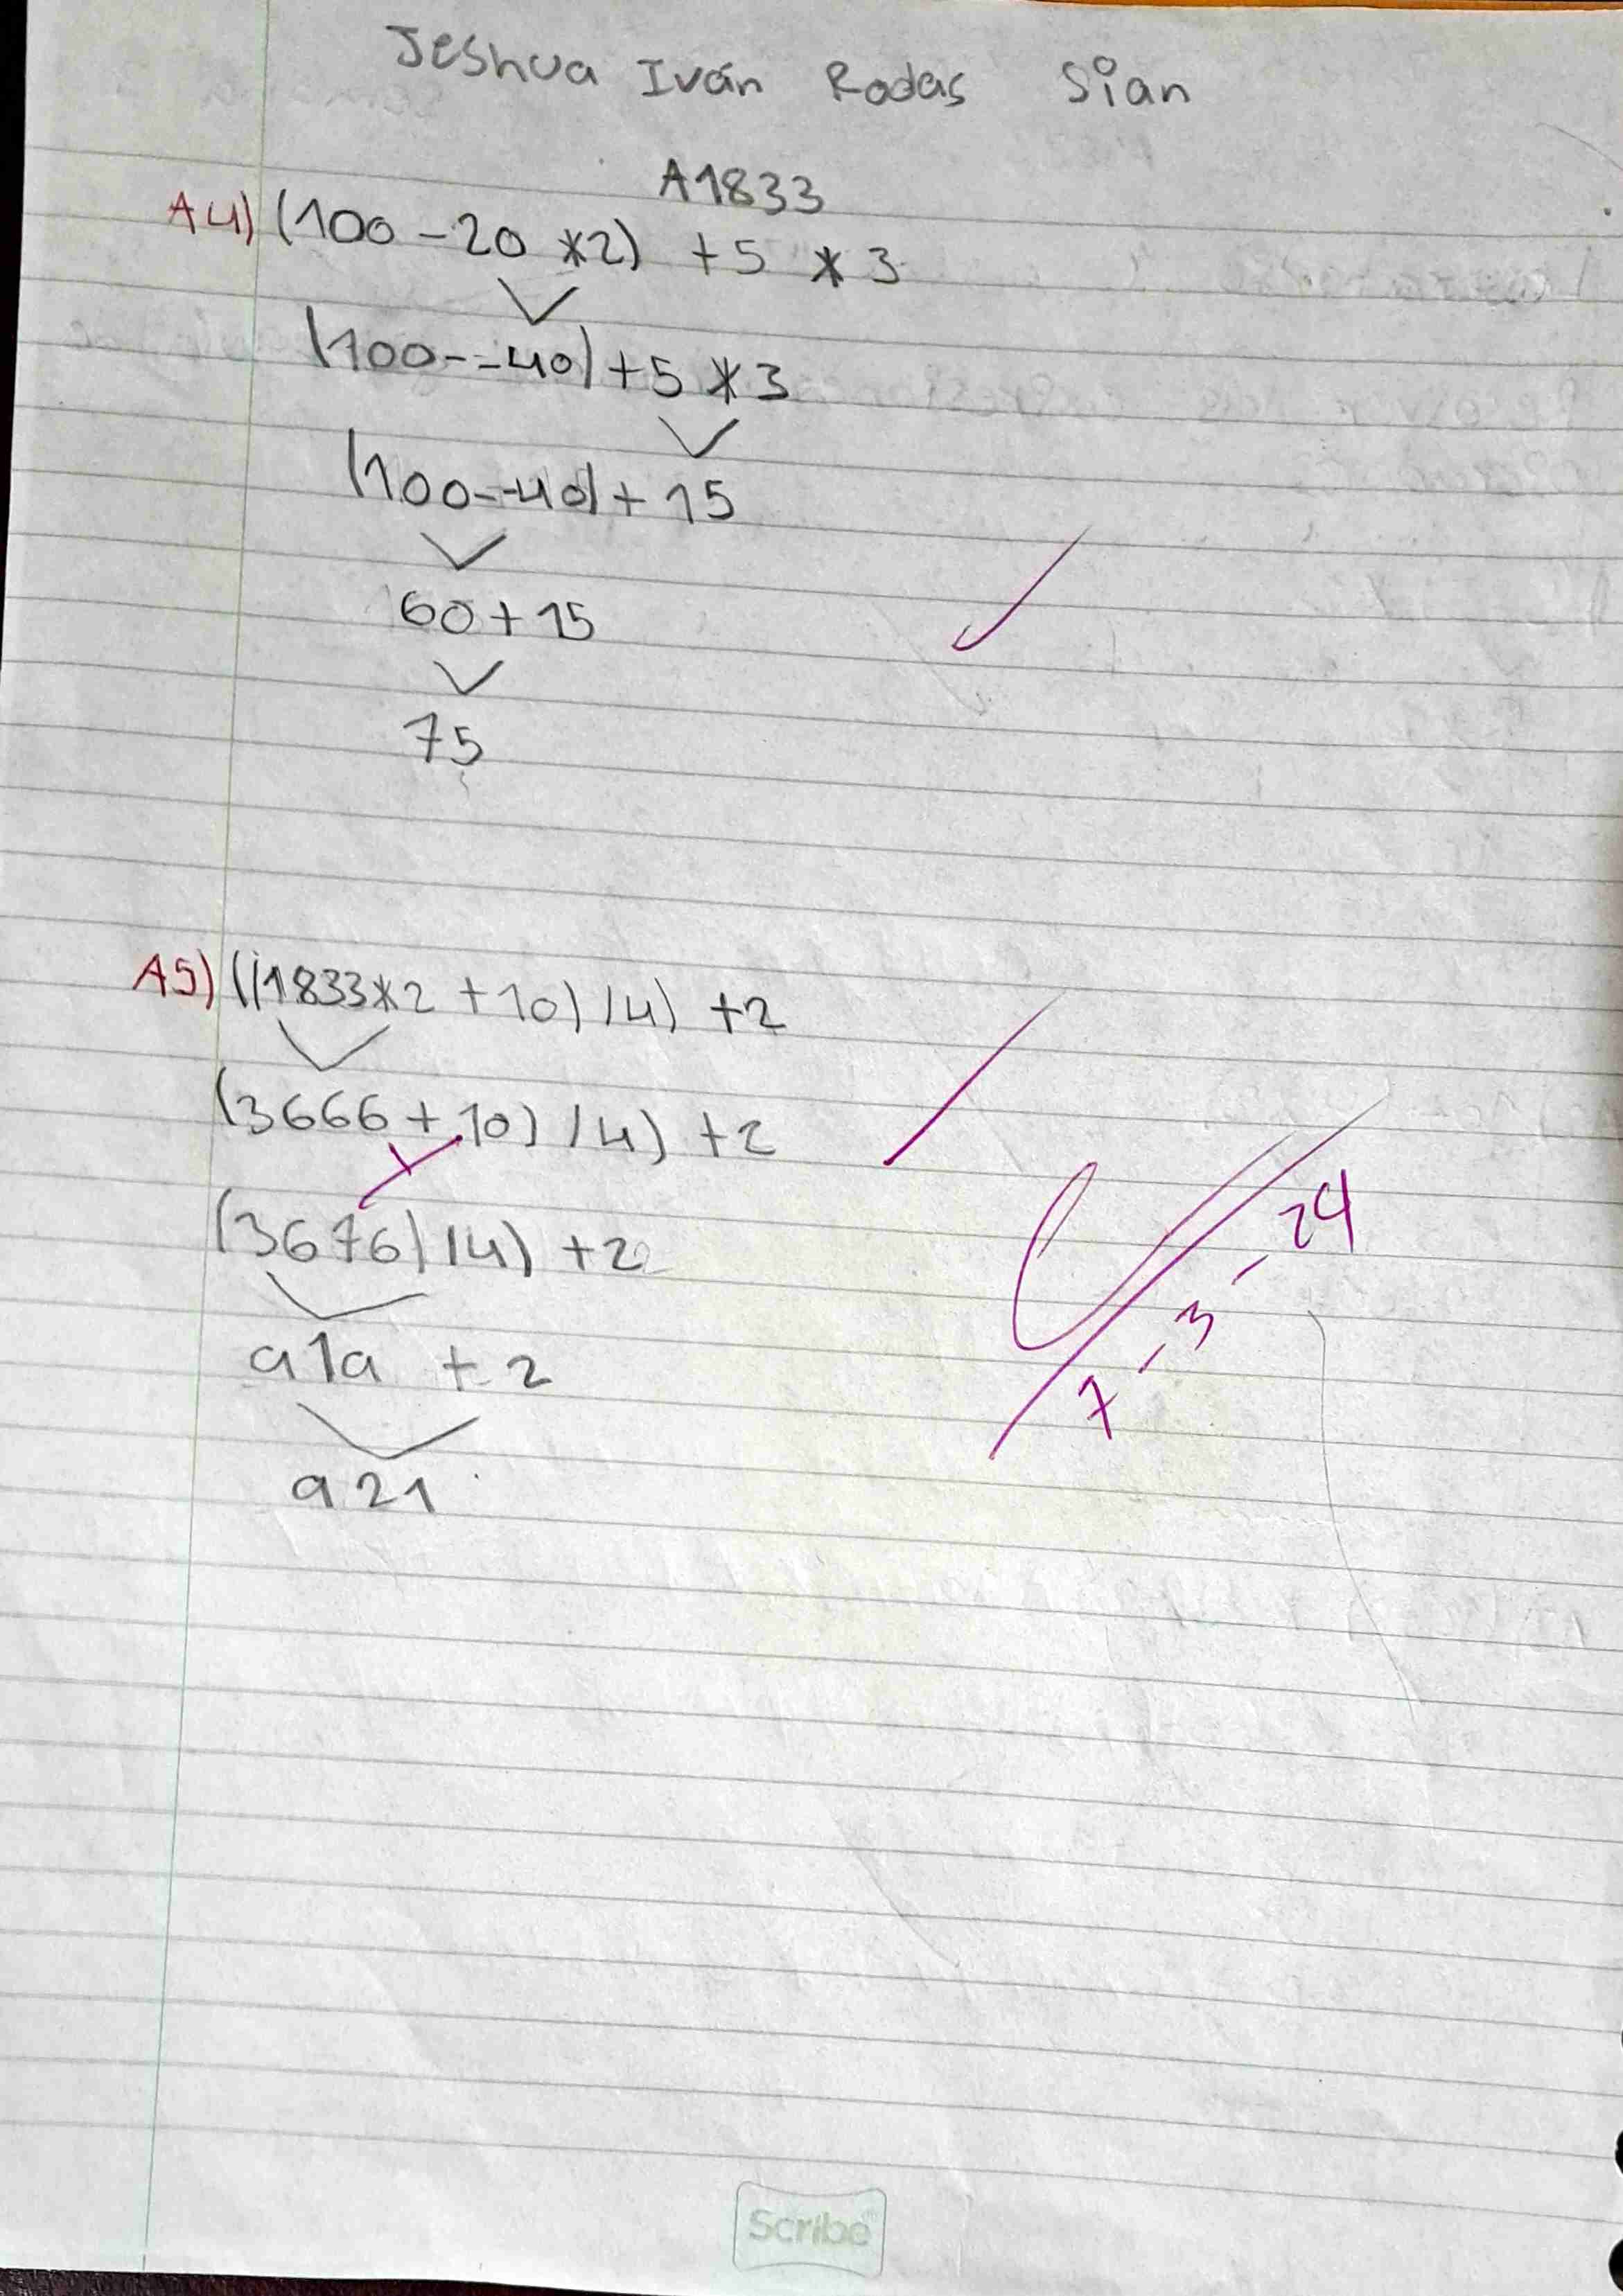 Jeshua Iván Rodas Sian
A1833
A4) (100 - 20 *2) + 5 * 3
(100--40) + 5 * 3
(100--40) + 15
60 + 15
75
A5) ((1833*2 + 10) / 4) + 2
(3666 + 10) / 4) + 2
(3676) / 4) + 2
919 + 2
921
7-3-24
Scribe